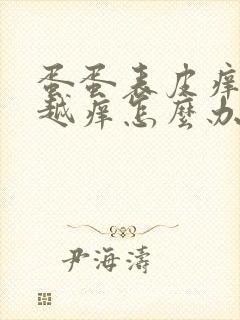 蛋蛋表皮痒
越痒怎麼办
尹海濤